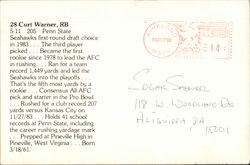 28 Curt Warner, RB
5-11 205 Penn State
Seahawks first round draft choice
in 1983 . . . The third player
picked . . . Became the first
rookie since 1978 to lead the AFC
in rushing . . . Ran for a team
record 1,449 yards and led the
Seahawks into the playoffs . . .
That's the fifth most yards by a
rookie . . . Consensus All AFC
pick and starter in the Pro Bowl
. . . Rushed for a club record 207
yards versus Kansas City on
11/27/83 . . . Holds 41 school
records at Penn State, including
the career rushing yardage mark
. . . Prepped at Pineville High in
Pineville, West Virginia . . . Born
3/18/61
14
Edgar Spencer
118 W. Woodland Dr.
Aliquippa PA
15001